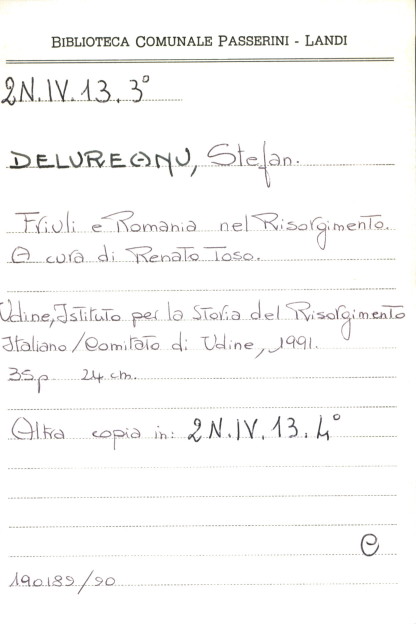 BIBLIOTECA COMUNALE PASSERINI - LANDI
2N.IV.13.3°
DELUREANU, Stefan.
Friuli e Romania nel Risorgimento.
A cura di Renato Toso.
Udine, Istituto per la Storia del Risorgimento
Italiano/Comitato di Udine, 1991.
35p. 24 cm.
Altra copia in: 2N.IV.13.4°
C
190189/90